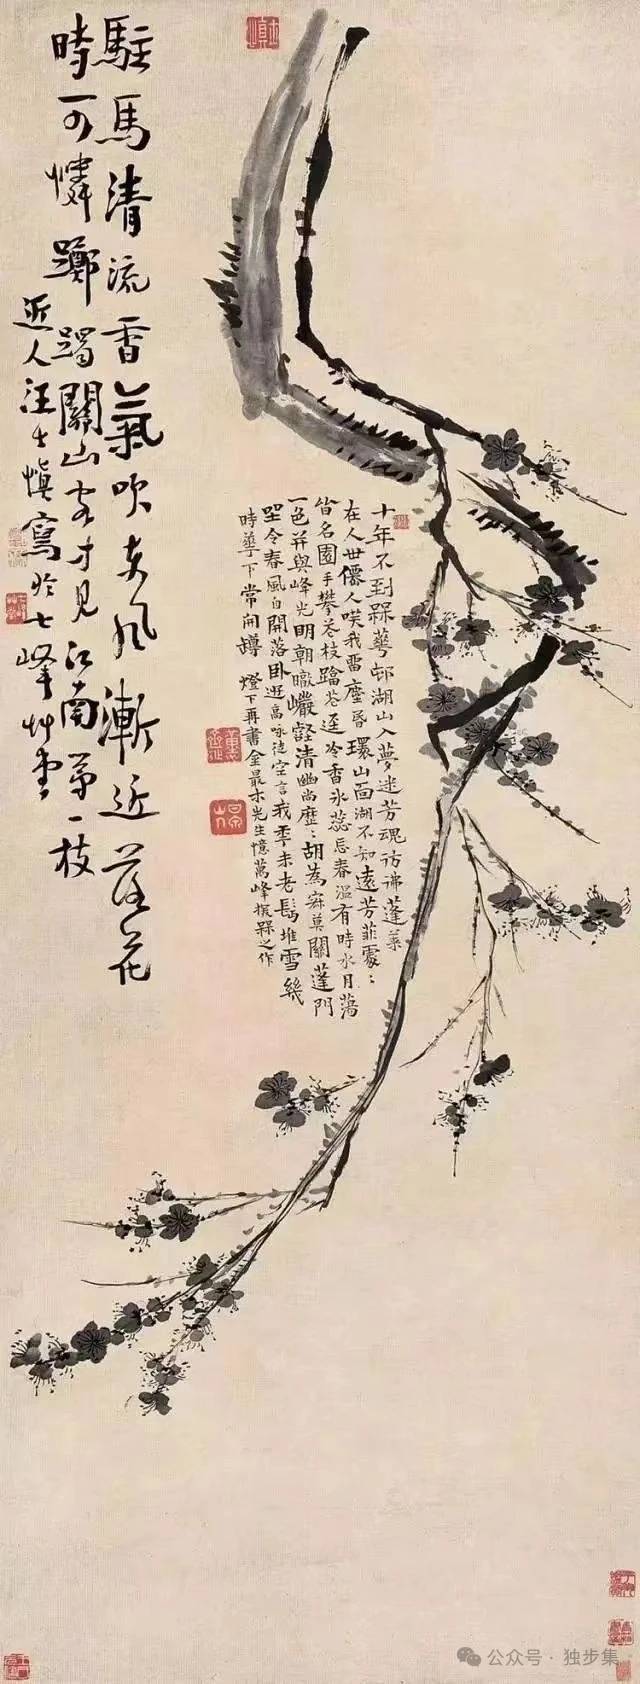 駐馬清流香氣吹東風漸近落花
時可憐躑躅關山客才見江南第一枝
近人汪士慎寫於七峰艸堂
十年不到槑華邨湖山入夢迷芳魂彷彿蓬萊
在人世僊人嘆我雷塵昏環山面湖不知遠芳菲處:
皆名園手攀花枝蹋花遅冷香氷蕊忘春溫有時水月蕩
一色并與峰光明朝暾巖壑清幽尚歷:胡為寂莫關蓬門
坐令春風自開落卧遊高咏徒空言我季未老髩堆雪幾
時華下常開罇燈下再書金最亦先生憶萬峰探槑之作
公众号·独步集